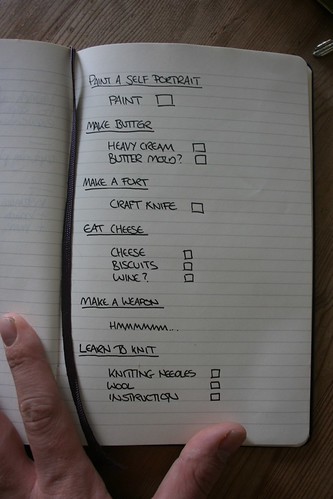 PAINT A SELF PORTRAIT
PAINT
MAKE BUTTER
HEAVY CREAM
BUTTER MOLD?
MAKE A FORT
CRAFT KNIFE
EAT CHEESE
CHEESE
BISCUITS
WINE?
MAKE A WEAPON
HMMMMMM....
LEARN TO KNIT
KNITTING NEEDLES
WOOL
INSTRUCTION